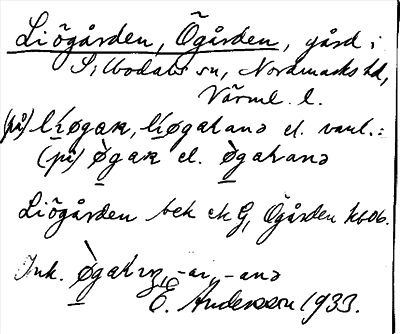 Liögården, Ögården, gård i
Silbodals sn, Nordmarks hd,
Värml. l.
(på) liøgaɴ, liøgaɫanə el. vanl.:
(på) øgaɴ el. øgaɫanə
Liögården bek ek G, Ögården kbob.
Ink. øgaɫ -ar, -anə
E. Andersson 1933.